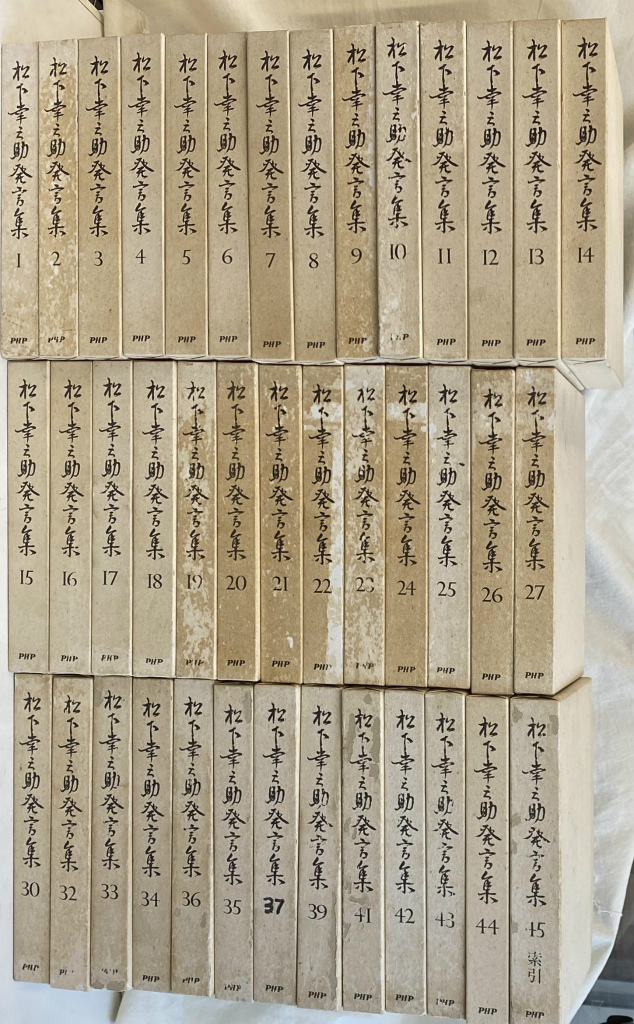 松下幸之助発言集 1 PHP
松下幸之助発言集 2 PHP
松下幸之助発言集 3 PHP
松下幸之助発言集 4 PHP
松下幸之助発言集 5 PHP
松下幸之助発言集 6 PHP
松下幸之助発言集 7 PHP
松下幸之助発言集 8 PHP
松下幸之助発言集 9 PHP
松下幸之助発言集 10 PHP
松下幸之助発言集 11 PHP
松下幸之助発言集 12 PHP
松下幸之助発言集 13 PHP
松下幸之助発言集 14 PHP
松下幸之助発言集 15 PHP
松下幸之助発言集 16 PHP
松下幸之助発言集 17 PHP
松下幸之助発言集 18 PHP
松下幸之助発言集 19 PHP
松下幸之助発言集 20 PHP
松下幸之助発言集 21 PHP
松下幸之助発言集 22 PHP
松下幸之助発言集 23 PHP
松下幸之助発言集 24 PHP
松下幸之助発言集 25 PHP
松下幸之助発言集 26 PHP
松下幸之助発言集 27 PHP
松下幸之助発言集 30 PHP
松下幸之助発言集 32 PHP
松下幸之助発言集 33 PHP
松下幸之助発言集 34 PHP
松下幸之助発言集 36 PHP
松下幸之助発言集 35 PHP
松下幸之助発言集 37 PHP
松下幸之助発言集 39 PHP
松下幸之助発言集 41 PHP
松下幸之助発言集 42 PHP
松下幸之助発言集 43 PHP
松下幸之助発言集 44 PHP
松下幸之助発言集 45 索引 PHP